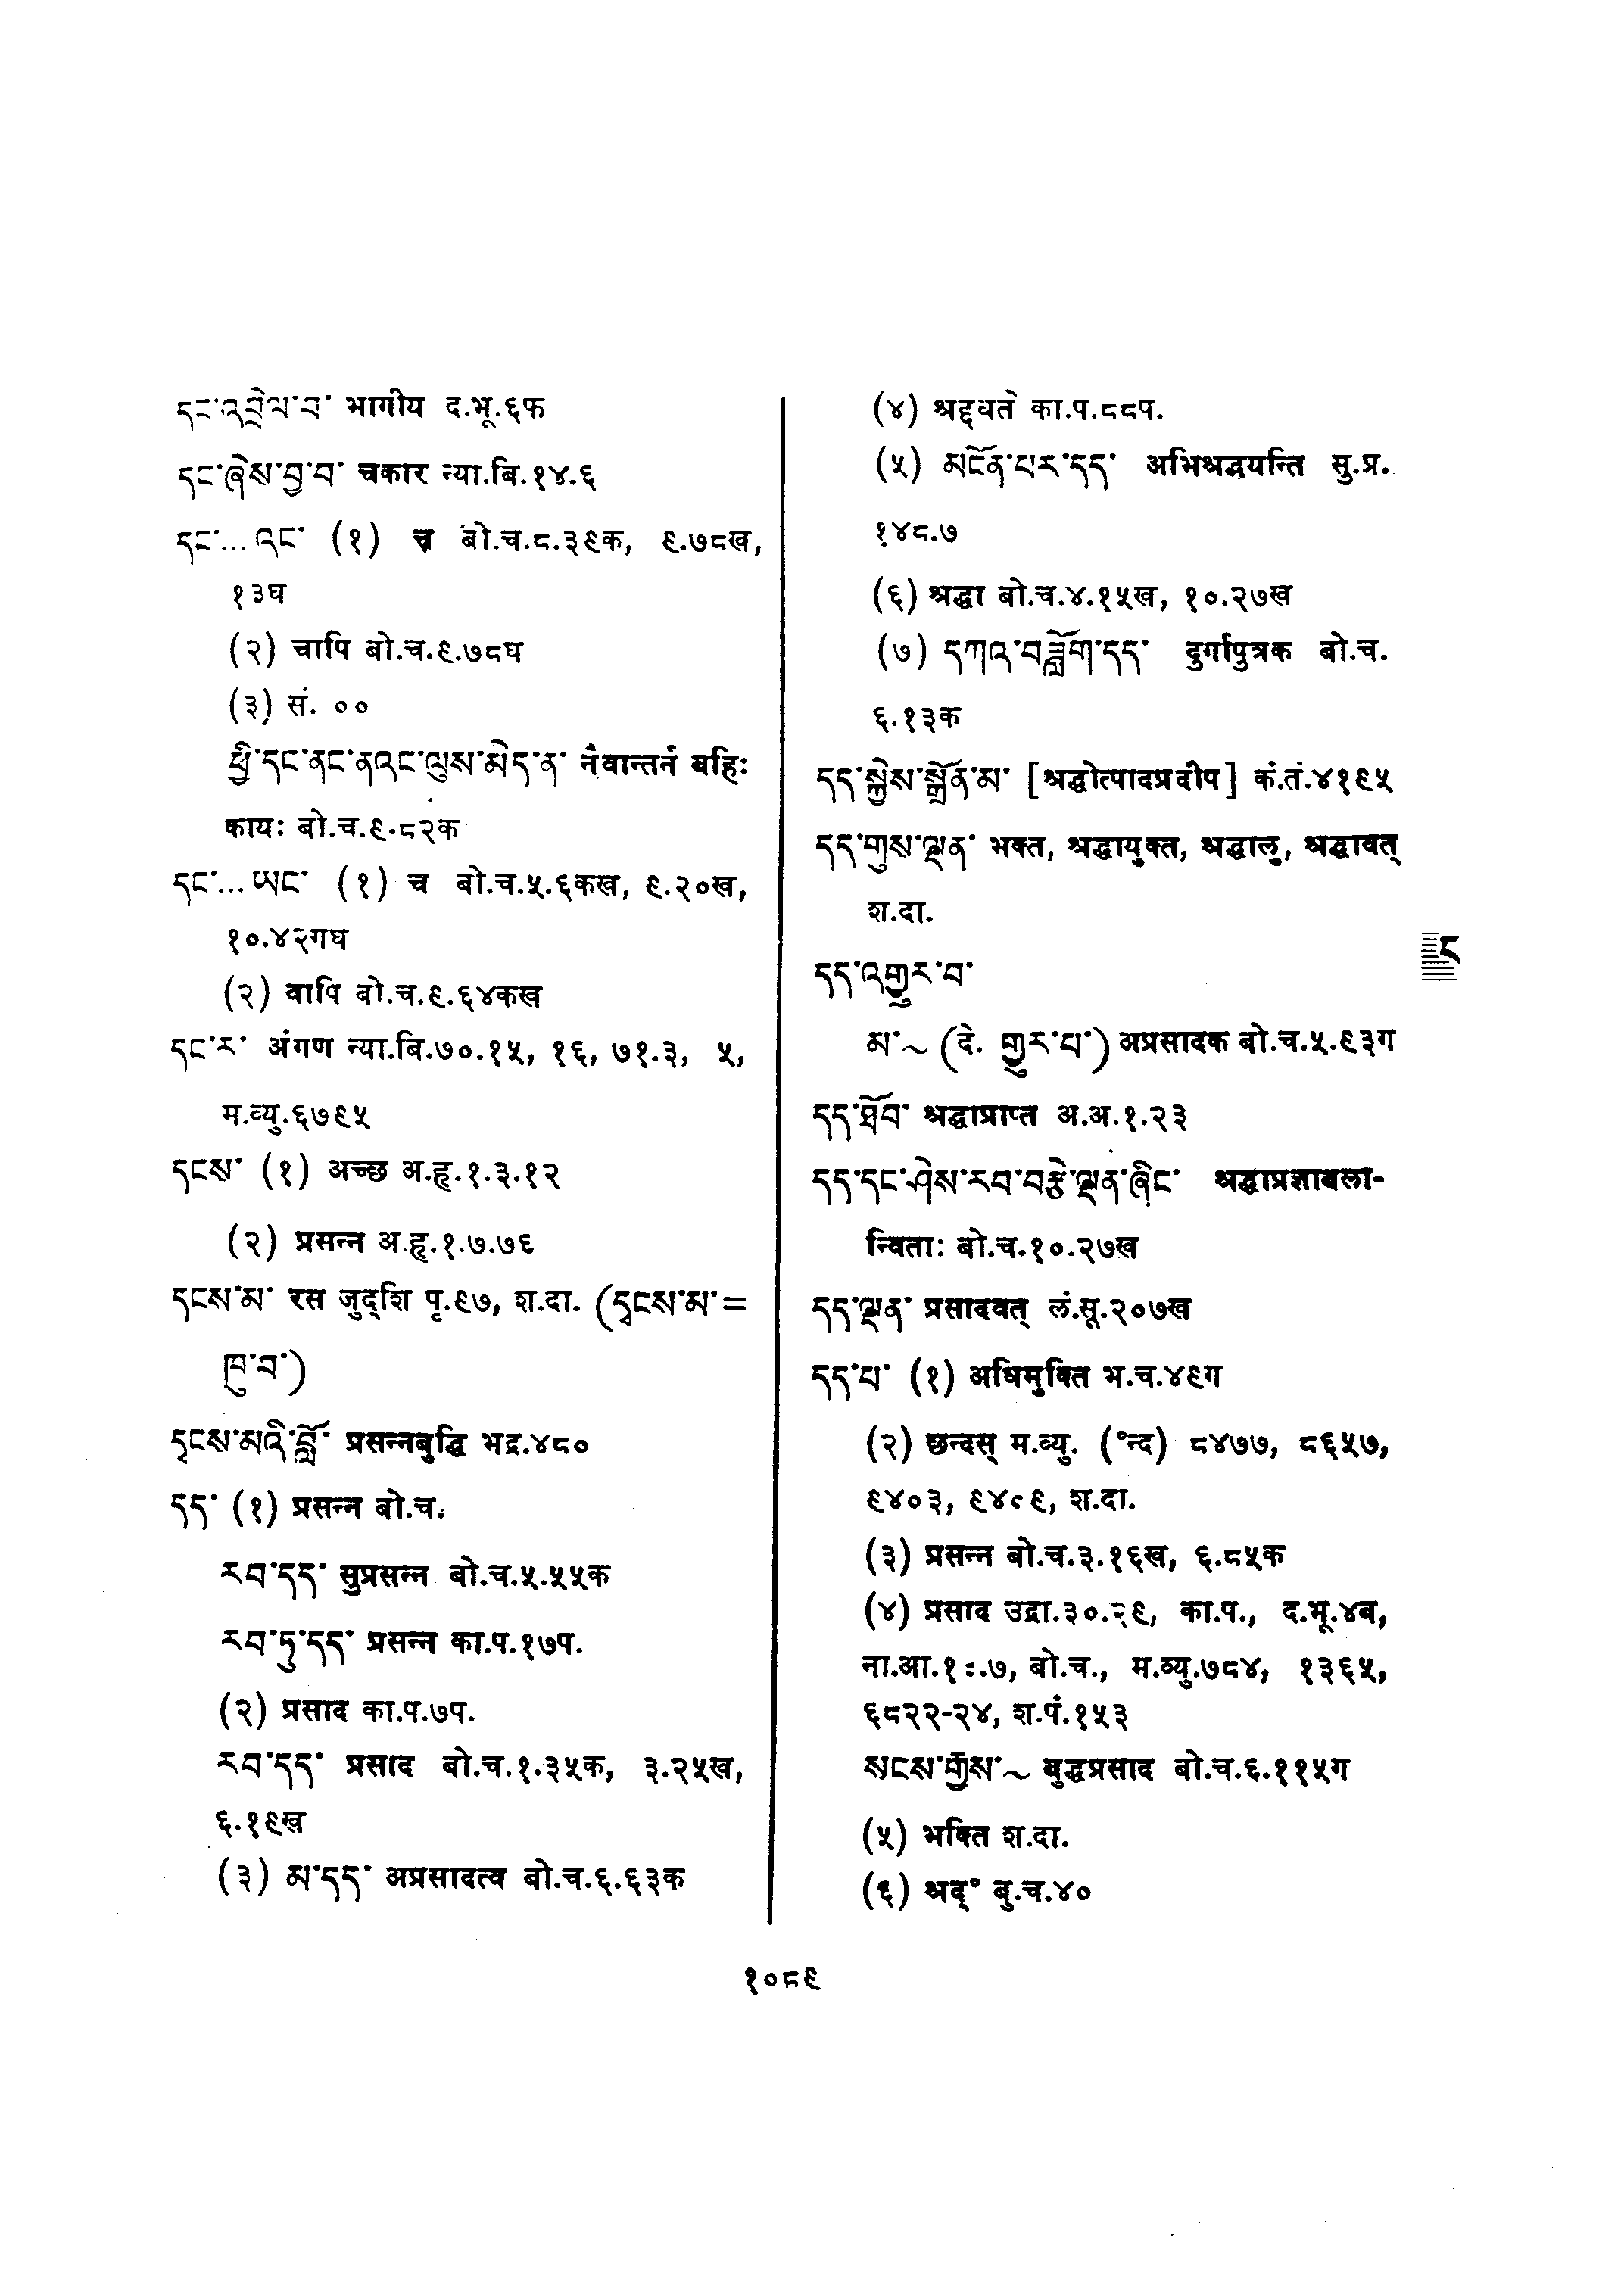 དང་འབྲེལ་བ་ भागीय द.भू.६फ
དང་ཞེས་བྱ་བ་ चकार न्या.बि.१४.६
དང་...འང་ (१) च बो.च.८.३९क, ९.७८ख,
१३घ
(२) चापि बो.च.९.७८घ
(३) सं. ००
ཕྱི་དང་ནང་ནའང་ལུས་མེད་ན་ नैवान्तर्न बहिः
कायः बो.च.९.८२क
དང་...ཡང་ (१) च बो.च.५.६कख, ९.२०ख,
१०.४२गघ
(२) वापि बो.च.९.६४कख
དང་ར་ अंगण न्या.बि.७०.१५, १६, ७१.३, ५,
म.व्यु.६७९५
དངས་ (१) अच्छ अ.हृ.१.३.१२
(२) प्रसन्न अ.हृ.१.७.७६
དངས་མ་ रस जुद्शि पृ.९७, श.दा. (དྭངས་མ་=
ཁུ་བ་)
དྭངས་མའི་བློ་ प्रसन्नबुद्धि भद्र.४८०
དད་ (१) प्रसन्न बो.च.
རབ་དད་ सुप्रसन्न बो.च.५.५५क
རབ་ཏུ་དད་ प्रसन्न का.प.१७प.
(२) प्रसाद का.प.७प.
རབ་དད་ प्रसाद बो.च.१.३५क, ३.२५ख,
६.१९ख
(३) མ་དད་ अप्रसादत्व बो.च.६.६३क
(४) श्रद्दधते का.प.८८प.
(५) མངོན་པར་དད་ अभिश्रद्धयन्ति सु.प्र.
१४८.७
(६) श्रद्धा बो.च.४.१५ख, १०.२७ख
(७) དཀའ་བཟློག་དད་ दुर्गापुत्रक बो.च.
६.१३क
དད་སྐྱེས་སྒྲོན་མ་ [श्रद्धोत्पादप्रदीप] कं.तं.४१९५
དད་གུས་ལྡན་ भक्त, श्रद्धायुक्त, श्रद्धालु, श्रद्धावत्
श.दा.
ང
དད་འགྱུར་བ་
མ་~ (དེ. གྱུར་པ་) अप्रसादक बो.च.५.९३ग
དད་ཐོབ་ श्रद्धाप्राप्त अ.अ.१.२३
དད་དང་ཤེས་རབ་བརྩེ་ལྡན་ཞིང་ श्रद्धाप्रज्ञाबला-
न्विताः बो.च.१०.२७ख
དད་ལྡན་ प्रसादवत् लं.सू.२०७ख
དད་པ་ (१) अधिमुक्ति भ.च.४९ग
(२) छन्दस् म.व्यु. (°न्द) ८४७७, ८६५७,
९४०३, ९४०९, श.दा.
(३) प्रसन्न बो.च.३.१६ख, ६.८५क
(४) प्रसाद उद्रा.३०.२९, का.प., द.भू.४ब,
ना.आ. बो.च., म.व्यु.७८४, १३६५,
६८२२-२४, श.पं.१५३
སངས་རྒྱས་~ बुद्धप्रसाद बो.च.६.११५ग
(५) भक्ति श.दा.
(६) श्रद्° बु.च.४०
१०८९